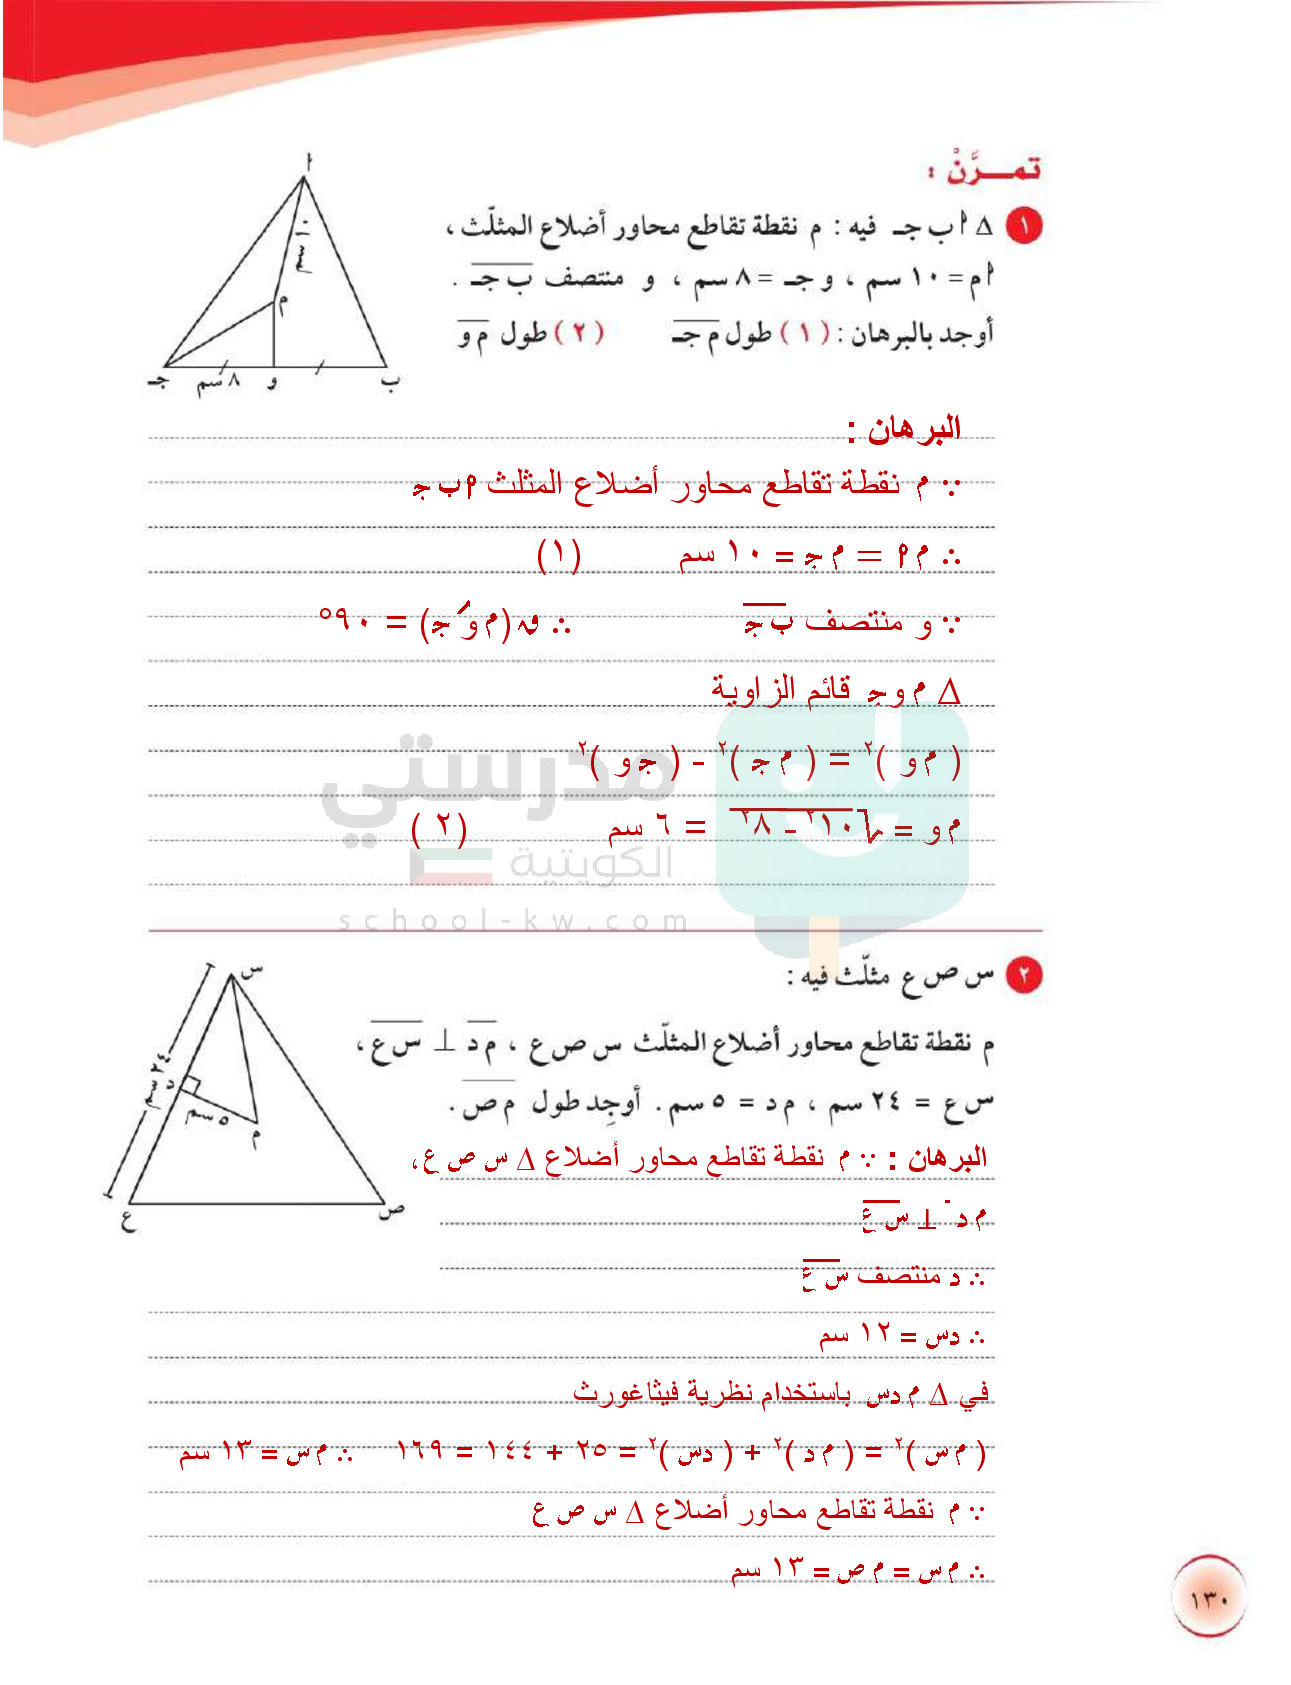 تمـــرَّنْ :
١ ∆ أ ب جـ فيه : م نقطة تقاطع محاور أضلاع المثلّث ،
أ م = ١٠ سم ، و جـ = ٨ سم ، و منتصف ب جـ .
أوجد بالبرهان : ( ١ ) طول م جـ ( ٢ ) طول م و
أ
١٠ سم
م
جـ ٨ سم و ب
البرهان :
∵ م نقطة تقاطع محاور أضلاع المثلث أ ب ج
∴ م أ = م ج = ١٠ سم (١)
∵ و منتصف ب ج ∴ ق (م و ج) = ٩٠°
∆ م و ج قائم الزاوية
( م و )٢ = ( م ج )٢ - ( ج و )٢
م و = √١٠٢ - ٨٢ = ٦ سم ( ٢ )
مدرستي
الكويتية
school-kw.com
٢ س ص ع مثلّث فيه :
م نقطة تقاطع محاور أضلاع المثلّث س ص ع ، م د ⊥ س ع ،
س ع = ٢٤ سم ، م د = ٥ سم . أوجِد طول م ص .
س
٢٤ سم
د
٥ سم
م
ع ص
البرهان : ∵ م نقطة تقاطع محاور أضلاع ∆ س ص ع،
م د ⊥ س ع
∴ د منتصف س ع
∴ دس = ١٢ سم
في ∆ م دس باستخدام نظرية فيثاغورث
( م س )٢ = ( م د )٢ + ( دس )٢ = ٢٥ + ١٤٤ = ١٦٩ ∴ م س = ١٣ سم
∵ م نقطة تقاطع محاور أضلاع ∆ س ص ع
∴ م س = م ص = ١٣ سم
١٣٠